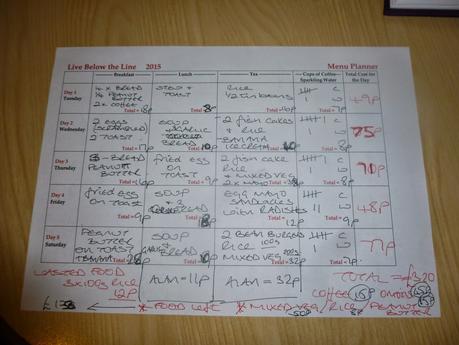 Live Below the Line 2015 Menu Planner
Breakfast Lunch Tea Cups of Coffee Sparkling Water Total Cost for the Day
Day 1
Tuesday
BREAD
PEANUT
BUTTER
2 x COFFEE
Total = 18p
SOUP +
TOAST
Total = 8p
RICE
1/2 tin beans
Total = 40p
Total = 7p
49p
Day 2
Wednesday
2 EGGS
(SCRAMBLED)
2 TOAST
Total = 17p
SOUP
+ GARLIC
BREAD
Total = 10p
2 fish cakes
+ RICE
BANANA
ICECREAM
Total = 40
Total = 8p
75p
Day 3
Thursday
BREAD
PEANUT
BUTTER
Total = 16p
fried egg
on
TOAST
Total = 9p
2 fish cake
RICE
+ MIXED VEG
2 x MAYO
Total = 8p
70p
Day 4
Friday
fried EGG
on TOAST
Total = 9p
SOUP
+ BREAD
Total = 8p
EGG MAYO
SANDWICHES
with RADISHES
Total = 12p
Total = 9p
48p
Day 5
Saturday
PEANUT
BUTTER
ON TOAST
BANANA
Total = 28
SOUP
GARLIC
BREAD
Total = 10
2 BEAN BURGERS
RICE 100g
MIXED VEG
Total = 32p
Total = 8p
77p
WASTED FOOD
3 x 100g RICE
12p
ALAN = 11p
ALAN = 32p
TOTAL = £3.20
COFFEE 15p ONIONS 15p
* FOOD LEFT * MIXED VEG / RICE / PEANUT
50p 8p BUTTER